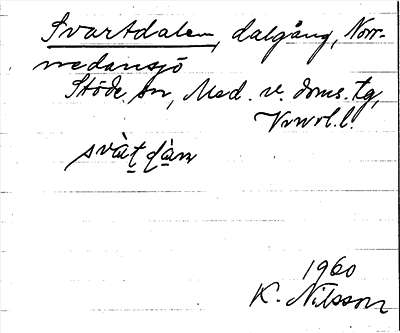 Svartdalen, dalgång, Norr-
nedansjö
Stöde sn, Med. v. doms. tg,
Vrwrl. l.
svàt̲ ḍà̲n
1960
K. Nilsson